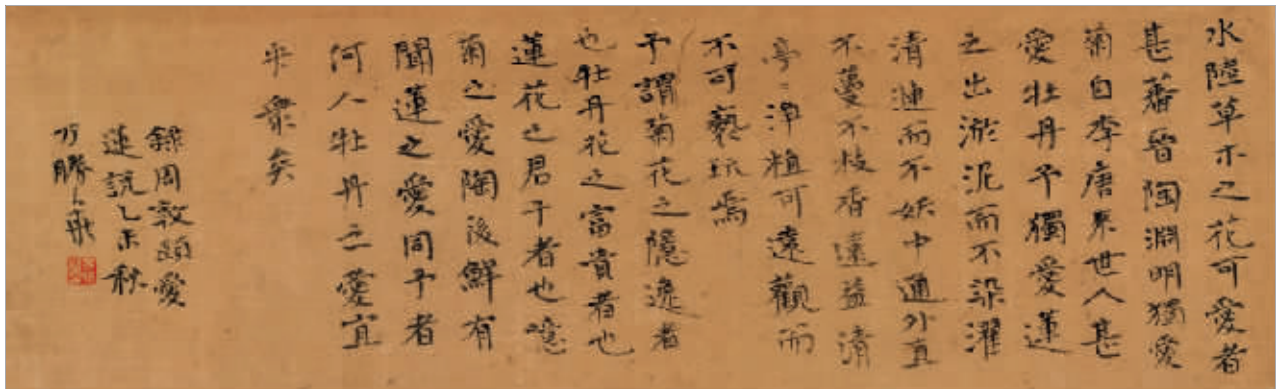 水陸草木之花可愛者
甚蕃晉陶淵明獨愛
菊自李唐來世人甚
愛牡丹予獨愛蓮
之出淤泥而不染濯
清漣而不妖中通外直
不蔓不枝香遠益清
亭〻淨植可遠觀而
不可褻玩焉
予謂菊花之隱逸者
也牡丹花之富貴者也
蓮花之君子者也噫
菊之愛陶後鮮有
聞蓮之愛同予者
何人牡丹之愛宜
乎衆矣
錄周敦頤愛
蓮說乙未秋
勝